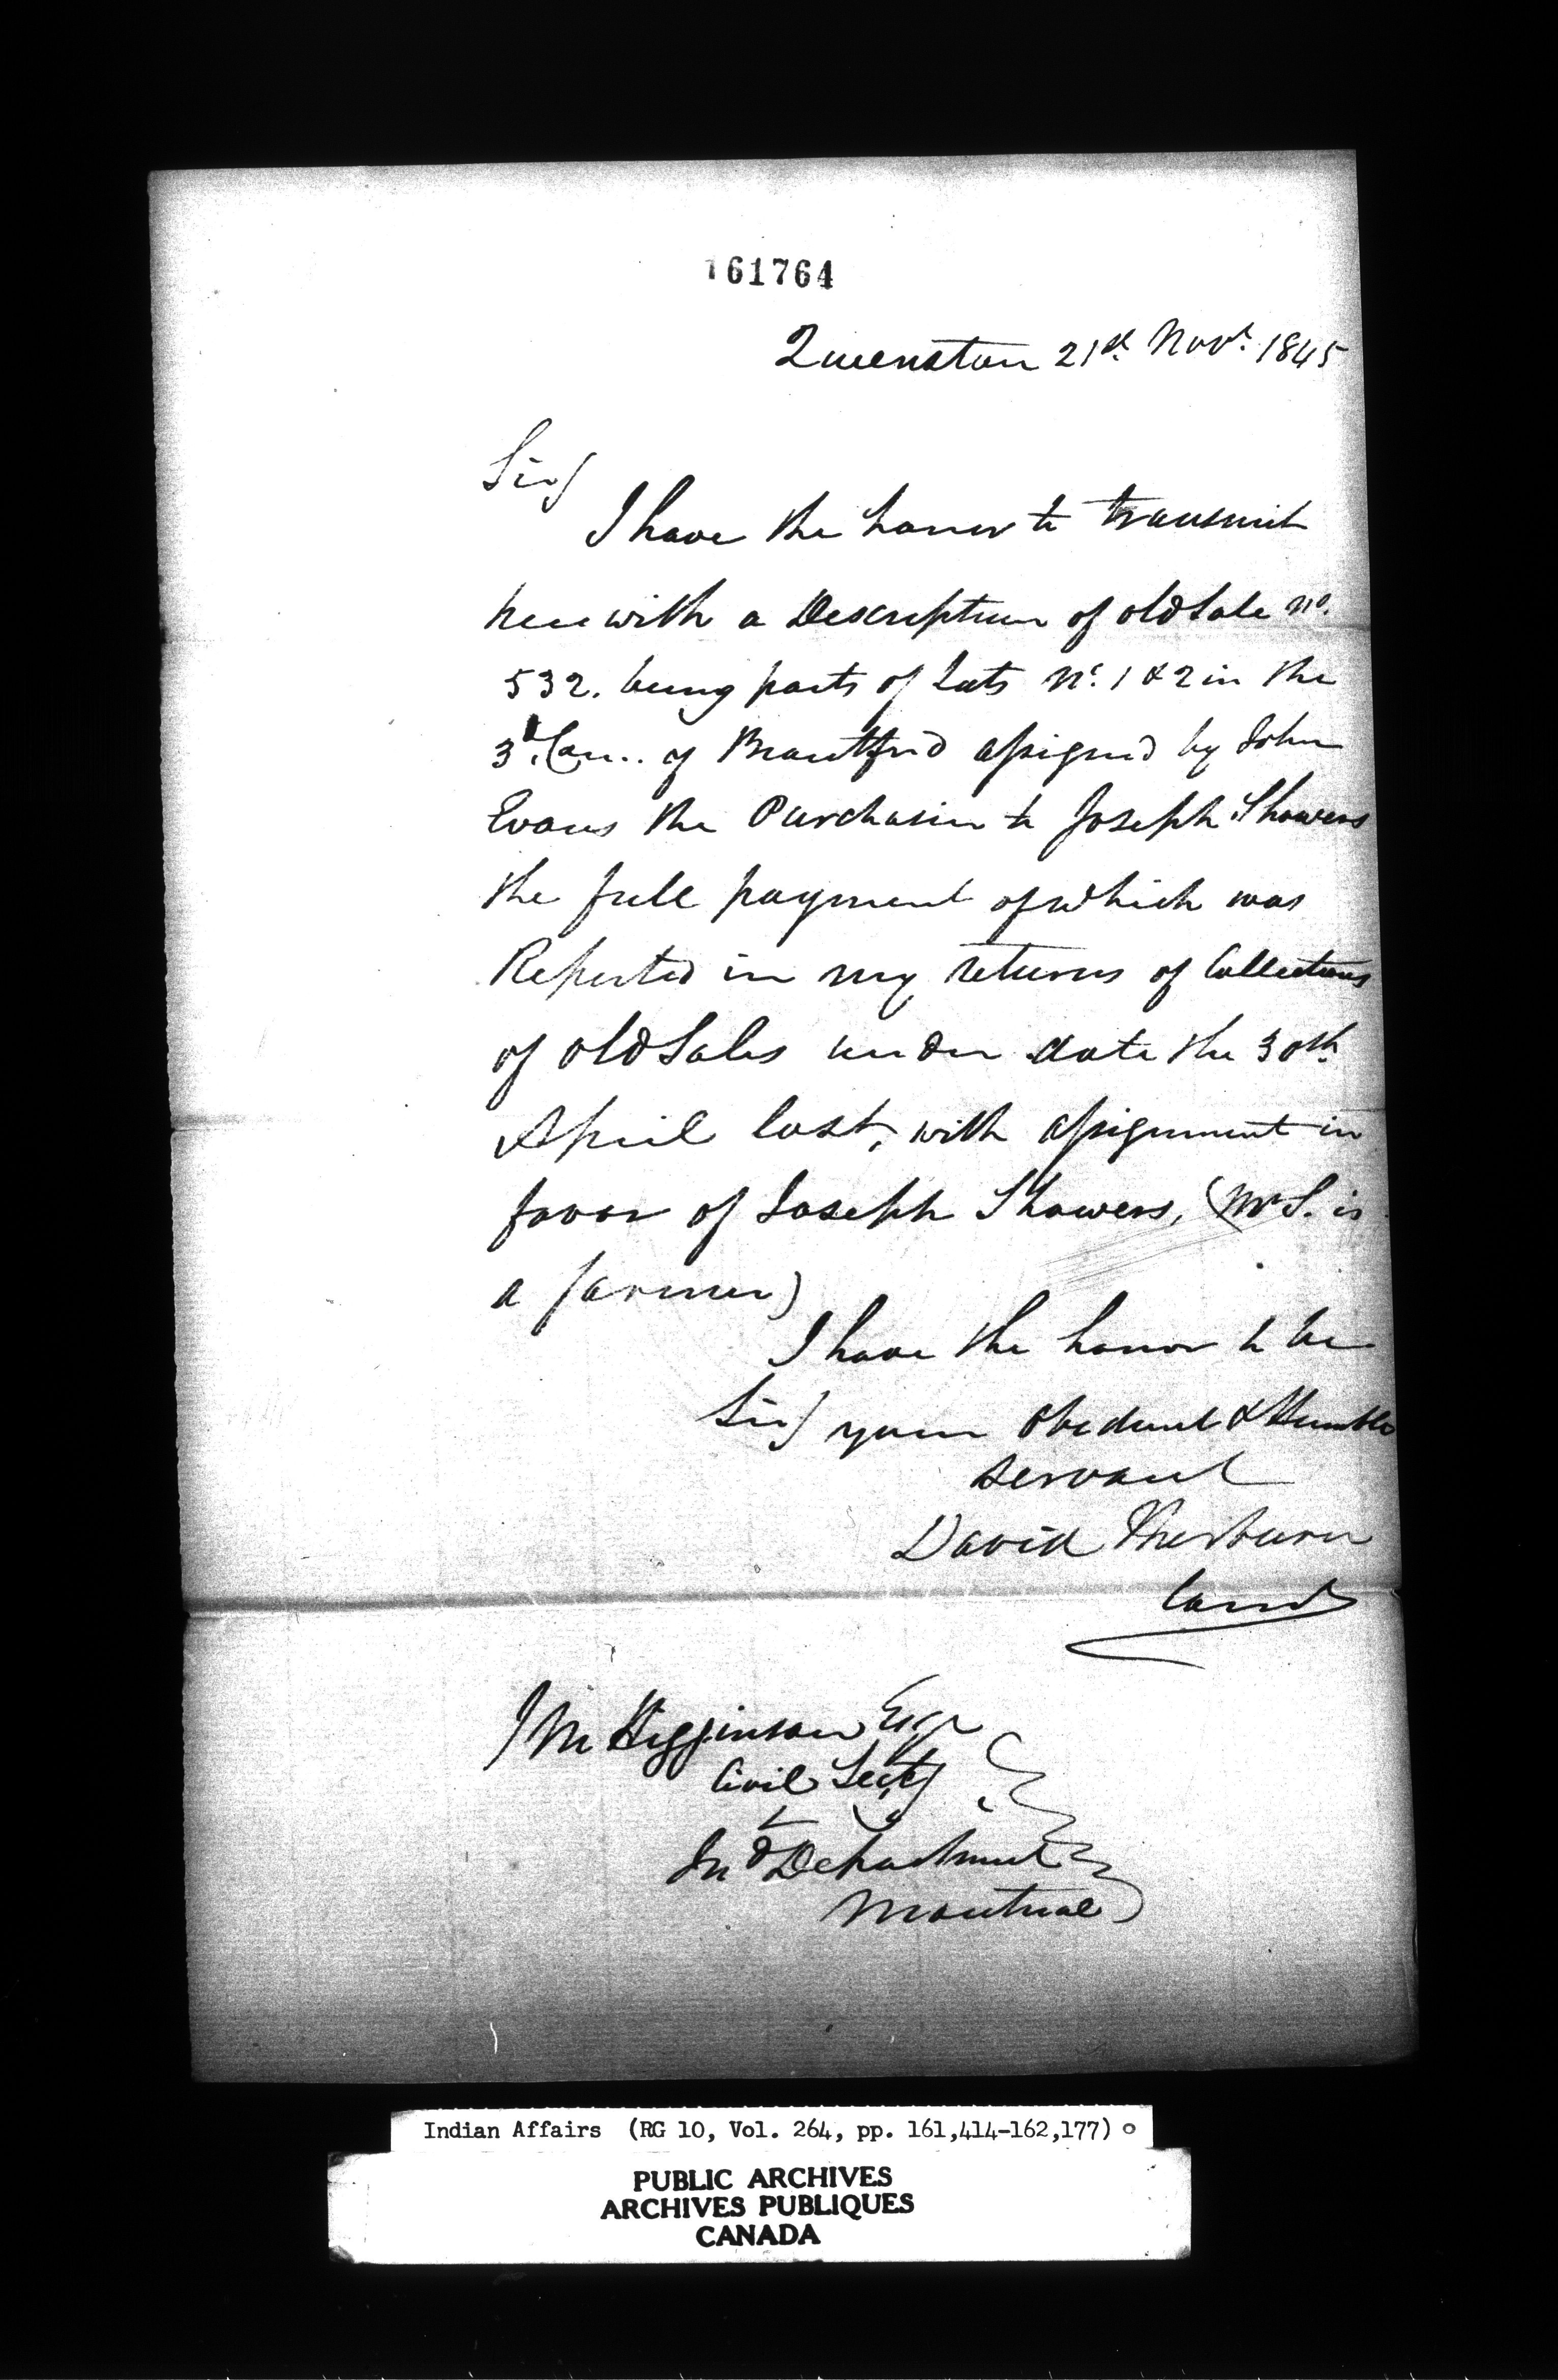 161764
Queenston 21st. Novr. 1845
Sir/
I have the honor to transmit
herewith a Description of old Sale No.
532. being parts of Lots No. 1 & 2 in the
3d. Con.. of Brantford assigned by John
Evans the Purchaser to Joseph Showers
the full payment of which was
Reported in my returns of Collections
of old Sales under date the 30th
April last, with assignment in
favor of Joseph Showers, (Mr S. is
a farmer)
I have the honor to be
Sir/ your Obedient & Humble
servant
David Thorburn
Comr
J M Higginson Esqr
Civil Secty
Ind Department
Montreal
Indian Affairs (RG 10, Vol. 264, pp. 161,414-162,177)
PUBLIC ARCHIVES
ARCHIVES PUBLIQUES
CANADA